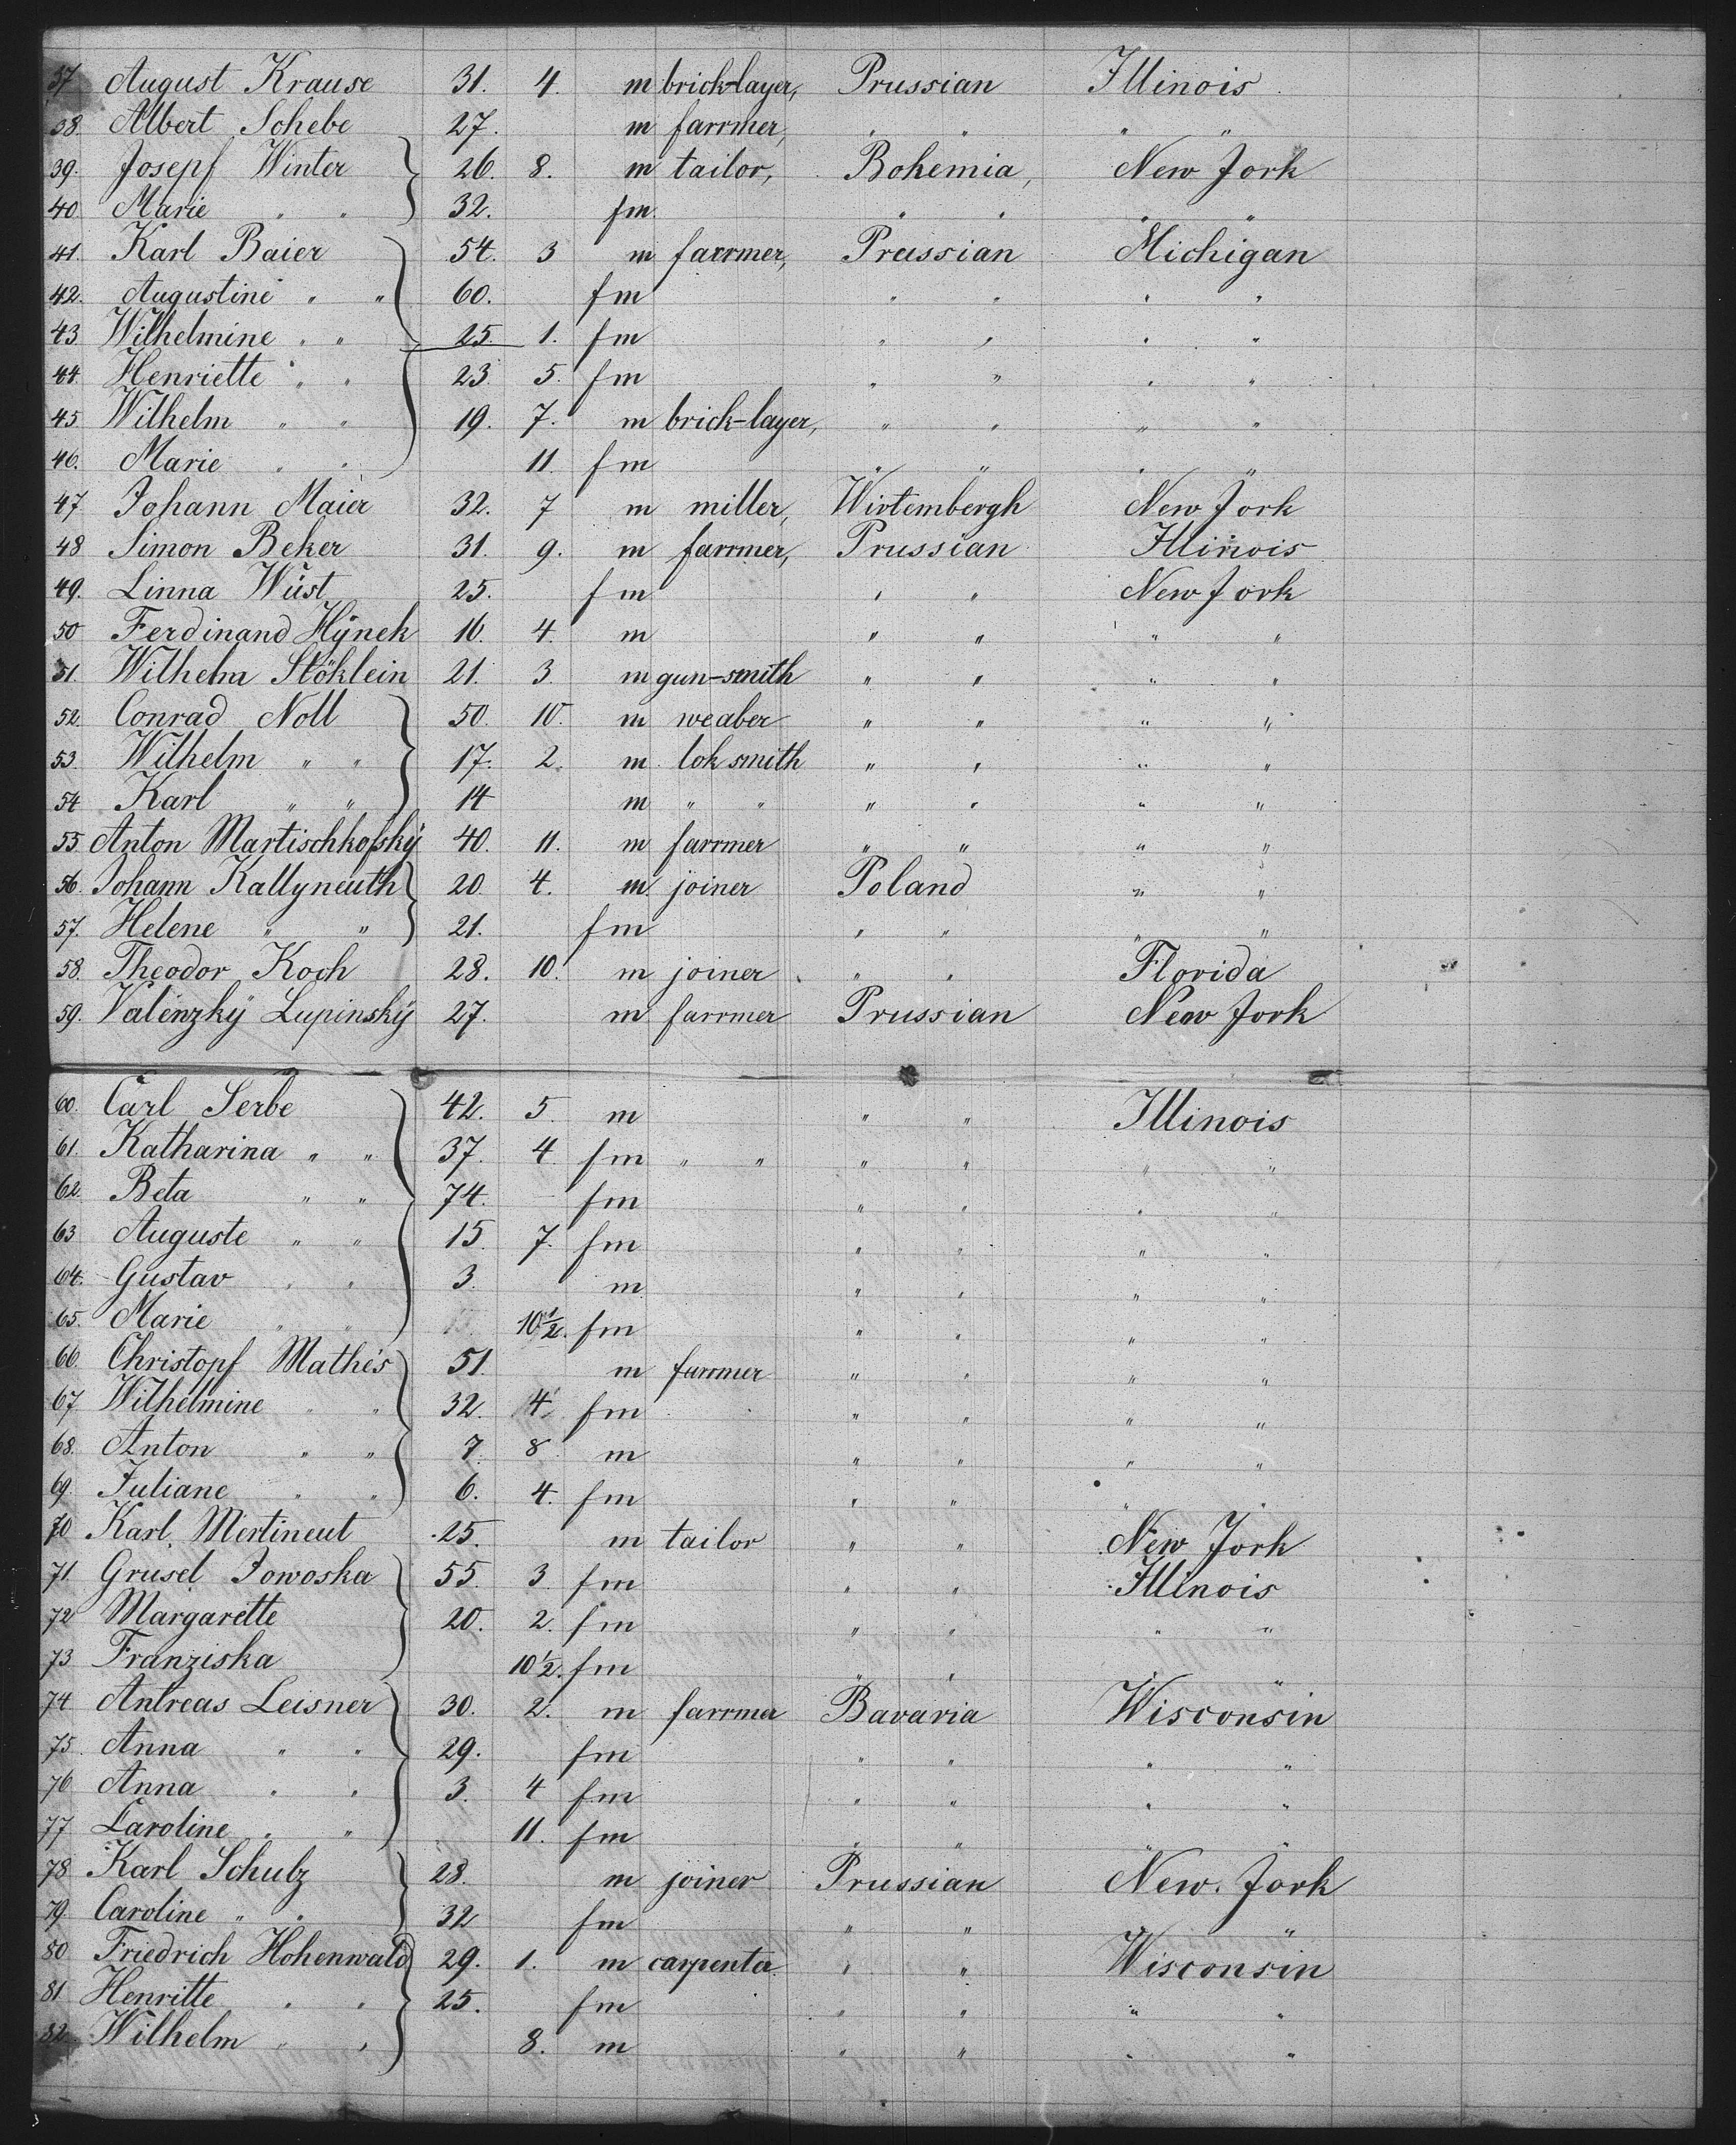 37 August Krause 31. 4. m brick-layer, Prussian Illinois
38. Albert Schebe 27. m farrmer, " " " "
39. Josepf Winter 26. 8. m tailor, Bohemia, New Jork
40. Marie " " 32. fm. " " " "
41. Karl Baier 54. 3 m farrmer, Prussian Michigan
42. Augustine " " 60. fm " " " "
43 Wilhelmine " " 25. 1. fm " " " "
44. Henriette " " 23 5. fm " " " "
45 Wilhelm " " 19. 7. m brick-layer, " " " "
46. Marie " " 11. fm " " " "
47 Johann Maier 32. 7 m miller, Wirtembergh New Jork
48 Simon Beker 31. 9. m farrmer, Prussian Illinois
49. Linna Wüst 25. fm " " New Jork
50 Ferdinand Hÿnek 16. 4. m " " " "
51. Wilhelm Stöklein 21. 3. m gun-smith " " " "
52. Conrad Noll 50. 10. m weaber " " " "
53. Wilhelm " " 17. 2. m lok smith " " " "
54 Karl " " 14 m " " " " " "
55 Anton Martischkofskÿ 40. 11. m farrmer " " " "
56. Johann Kallyneuth 20. 4. m. joiner Poland " "
57. Helene " " 21. fm " " " "
58. Theodor Koch 28. 10. m joiner " " Florida
59. Valenzkÿ Lupinskÿ 27. m farrmer Prussian New Jork
60. Carl Serbe 42. 5. m " " Illinois
61. Katharina " " 37. 4. fm " " " " " "
62. Beta " " 74. fm " " " "
63 Auguste " " 15. 7. fm " " " "
64. Gustav " " 3. m " " " "
65. Marie " " 10 1/2. fm " " " "
66. Christopf Mathes 51. m farrmer " " " "
67 Wilhelmine " " 32. 4 fm " " " "
68. Anton " " 7. 8 m " " " "
69. Juliane " " 6. 4. fm " " " "
70 Karl Mertineut 25. m tailor " " New Jork
71. Grusel Jowoska 55. 3. fm " " Illinois
72 Margarette 20. 2. fm " " " "
73 Franziska 10 1/2. fm " " " "
74 Antreas Leisner 30. 2. m farrmer Bavaria Wisconsin
75. Anna " " 29. fm " " " "
76 Anna " " 3. 4 fm " " " "
77 Caroline " " 11. fm " " " "
78 Karl Schulz 28. m joiner Prussian New Jork
79. Caroline " " 32 fm " " " "
80 Friedrich Hohenwald 29. 1. m carpenter " " Wisconsin
81 Henritte " " 25. fm " " " "
82. Wilhelm " " 8. m " " " "